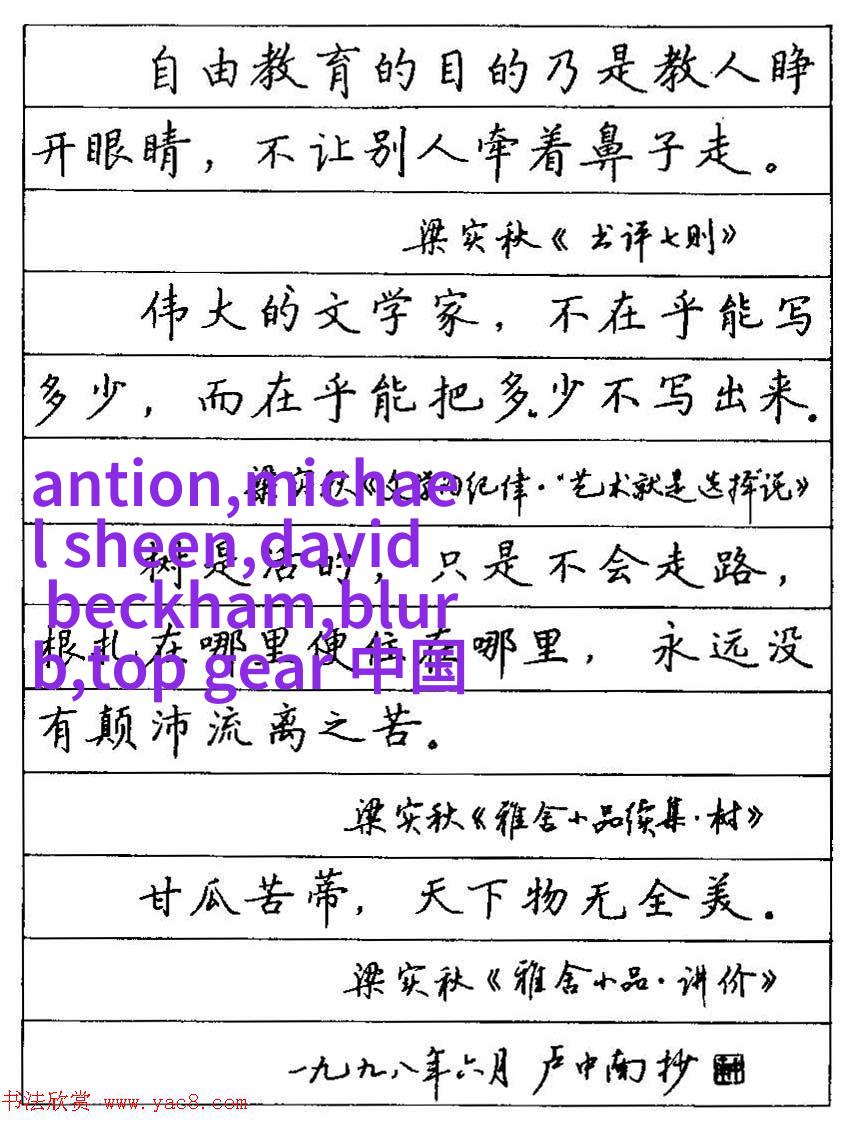 自由教育的目的乃是教人睁
开眼睛，不让别人牵着鼻子走。
梁实秋《书评七则》
伟大的文学家，不在乎能写
多少，而在乎能把多少不写出来。
梁实秋《文学的纪律·“艺术就是选择”说》
antion,michae
l sheen,david
beckham,blur
b,top gear 中国
树是活的，只是不会走路，
根扎在哪里便住在哪里，永远没
有颠沛流离之苦。
梁实秋《雅舍小品续集·树》
甘瓜苦蒂，天下物无全美。
梁实秋《雅舍小品·讲价》
一九九八年六月 卢中南抄
书法欣赏 www.yac8.com